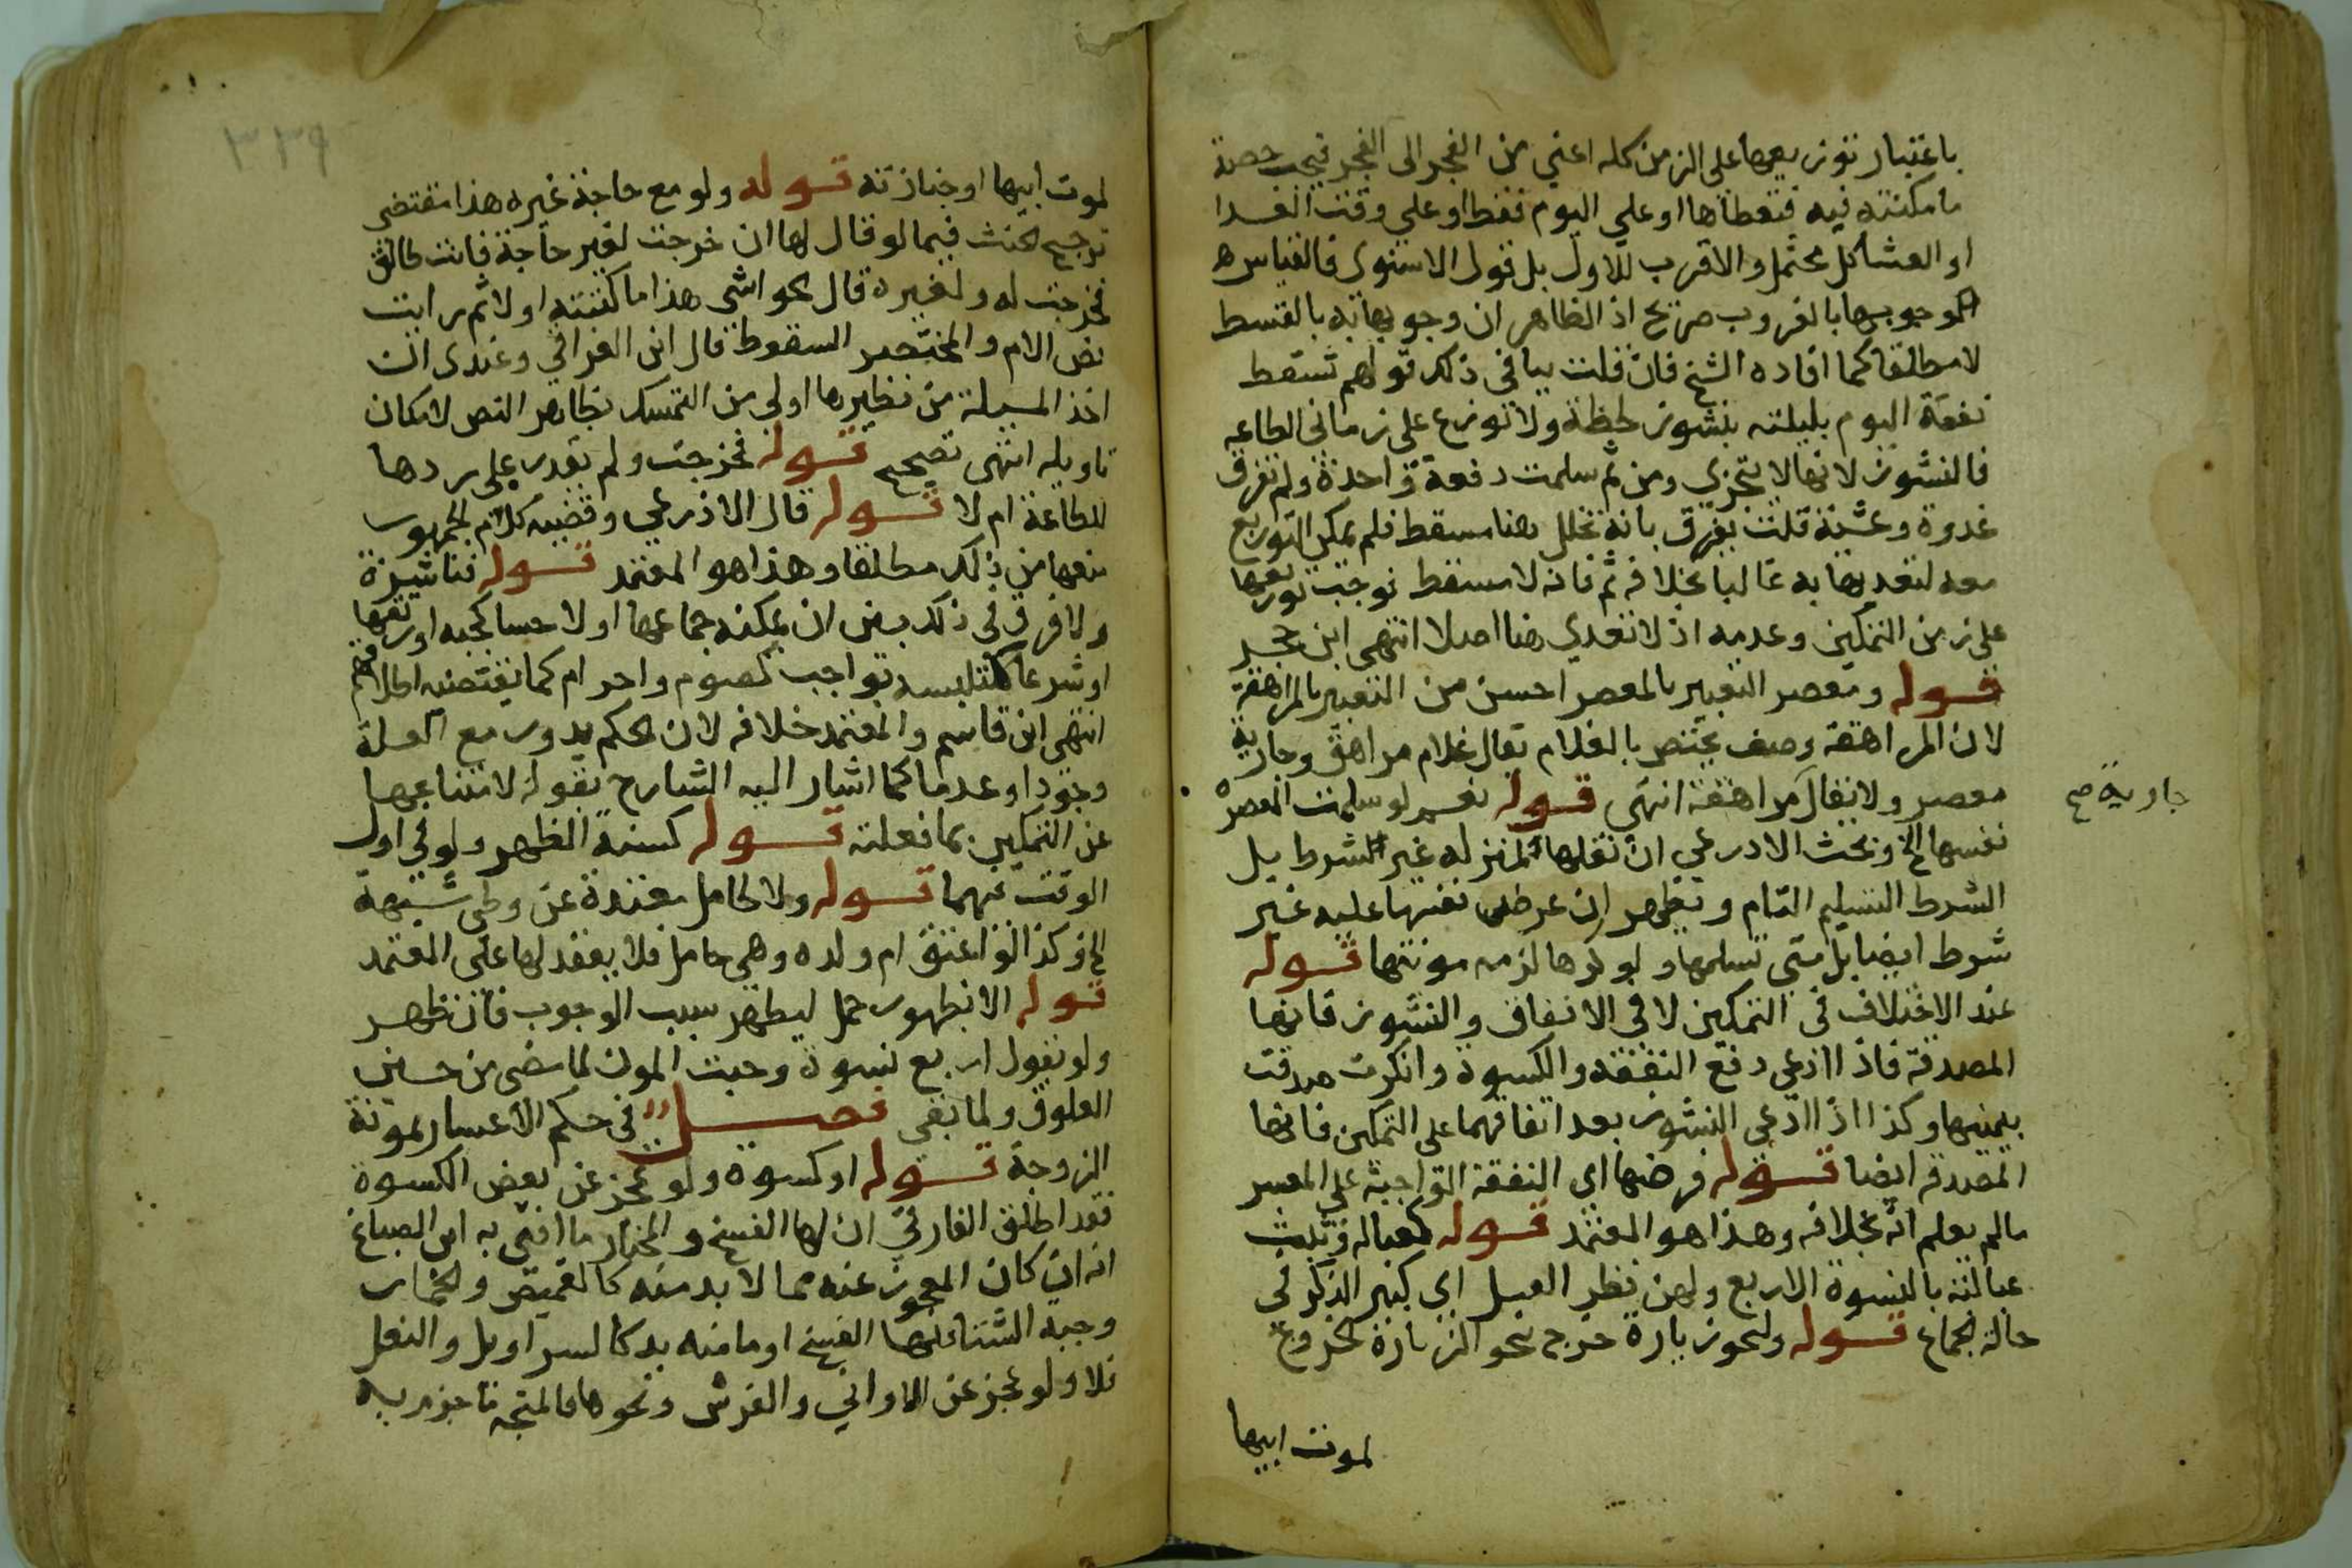 باعتبار توزيعها على الزمن كله اعني من الفجر الى الفجر فيجب حصة
ما مكنته فيه فتعطاها او على اليوم فقط او على وقت الغدا
او العشا كل محتمل والاقرب للاول بل قول الاسنوى فالقياس
وجوبها بالغروب صريح اذ الظاهر ان وجوبها به بالقسط
لا مطلقا كما افاده الشيخ فان قلت ينافى ذلك قولهم تسقط
نفقة اليوم بليلته بنشوز لحظة ولا توزع على زماني الطاعه
فالنشوز لانها لا تتجزى ومن ثم سلمت دفعة واحدة ولم تفرق
غدوة وعشية قلت يفرق بانه تخلل هنا مسقط فلم يمكن التوزيع
معه لتعديها به غالبا بخلافه ثم فانه لا مسقط فوجب توزيعها
على زمن التمكين وعدمه اذ لا تعدي هنا اصلا انتهى ابن حجر
قوله ومعصر التعبير بالمعصر احسن من التعبير بالمراهقة
لان المراهقة وصف يختص بالغلام يقال غلام مراهق وجارية
معصر ولا يقال مراهقة انتهى قوله نعم لو سلمت المعصر
جارية صح
نفسها الخ وبحث الاذرعي ان نقلها لمنزله غير شرط بل
الشرط التسليم التام ويظهر ان عرض نفسها عليه غير
شرط ايضا بل متى تسلمها ولو كرها لزمه مونتها قوله
عند الاختلاف في التمكين لا في الانفاق والنشوز فانها
المصدقة فاذا ادعى دفع النفقه والكسوة وانكرت صدقت
بيمينها وكذا اذا ادعى النشوز بعد اتفاقهما على التمكين فانها
المصدقه ايضا قوله فرضها اي النفقة الواجبة على المعسر
ما لم يعلم انه بخلافه وهذا هو المعتمد قوله كعبالة وتثبت
عبالته بالنسوة الاربع ولهن نظر العبل اي كبير الذكر في
حالة الجماع قوله ولنحو زيارة خرج نحو الزيارة الخروج
لموت ابيها
٣٣٩
لموت ابيها او جنازته قوله ولو مع حاجة غيره هذا يقتضى
ترجيح الحنث فيما لو قال لها ان خرجت لغير حاجة فانت طالق
فخرجت له ولغيره قال بحواشى هذا ما كتبته اولا ثم رايت
نص الام والمختصر السقوط قال ابن العراقي وعندى ان
اخذ المسيلة من نظيرها اولى من التمسك بظاهر النص لامكان
تاويله انتهى تصحيح قوله فخرجت ولم يقدر على ردها
للطاعة ام لا قوله قال الاذرعي وقضية كلام الجمهور
منعها من ذلك مطلقا وهذا هو المعتمد قوله فناشزة
ولا فرق في ذلك بين ان يمكنه جماعها او لا حسا كجبه او رتقها
او شرعا كتلبسه بواجب كصوم واحرام كما يقتضيه اطلاقهم
انتهى ابن قاسم والمعتمد خلافه لان الحكم يدور مع العلة
وجودا وعدما كما اشار اليه الشارح بقوله لامتناعها
عن التمكين بما فعلته قوله كسنة الظهر ولو في اول
الوقت عنهما قوله ولا لحامل معتدة عن وطى شبهة
الخ وكذا لو اعتق ام ولده وهي حامل فلا نفقة لها على المعتمد
قوله الا بظهور حمل ليظهر سبب الوجوب فان ظهر
ولو بقول اربع نسوة وجبت المون لما مضى من حين
العلوق ولما بقي فصل في حكم الاعسار بمونة
الزوجة قوله او كسوة ولو عجز عن بعض الكسوة
فقد اطلق الفارقي ان لها الفسخ والمختار ما افتى به ابن الصباغ
انه ان كان المعجوز عنه مما لا بد منه كالقميص والخمار
وجبة الشتا فلها الفسخ او ما منه بد كالسراويل والنعل
فلا ولو عجز عن الاواني والفرش ونحوها فالمتجه ما جزم به